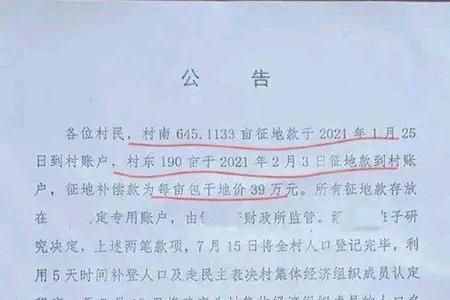 公 告
各位村民，村南 645.1133 亩征地款于 2021 年 1 月 25
日到村账户，村东 190 亩于 2021 年 2 月 3 日征地款到村账
户，征地补偿款为每亩包干地价 39 万元。所有征地款存放
在 定专用账户，由 财政所监管。 班子研
究决定，上述两笔款项，7 月 15 日将全村人口登记完毕，利
用 5 天时间补登人口及走民主表决村集体经济组织成员认定